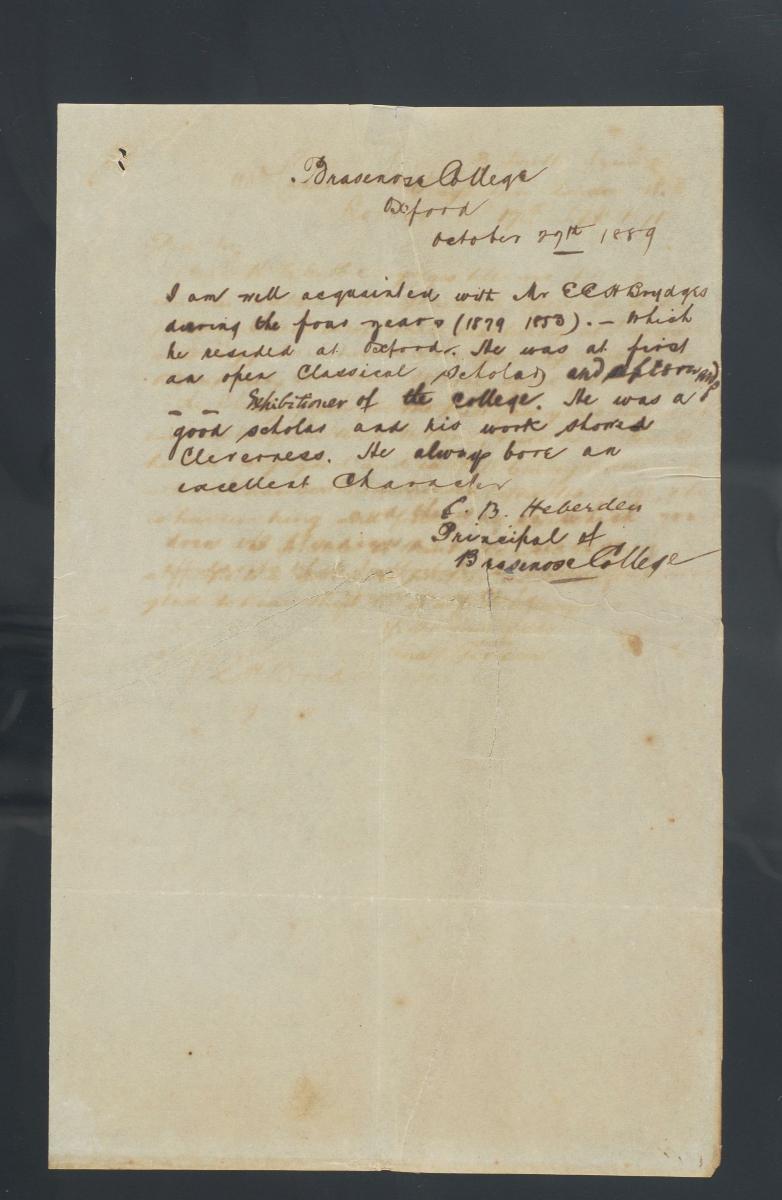 Brasenose College
Oxford
October 29th 1889
I am well acquainted with Mr E C H Brydges
during the four years (1879 1883). — Which
he resided at Oxford. He was at first
an open Classical Scholar and afterwards
— — Exhibitioner of the college. He was a
good scholar and his work showed
Cleverness. He always bore an
excellent Character
C. B. Heberden
Principal of
Brasenose College